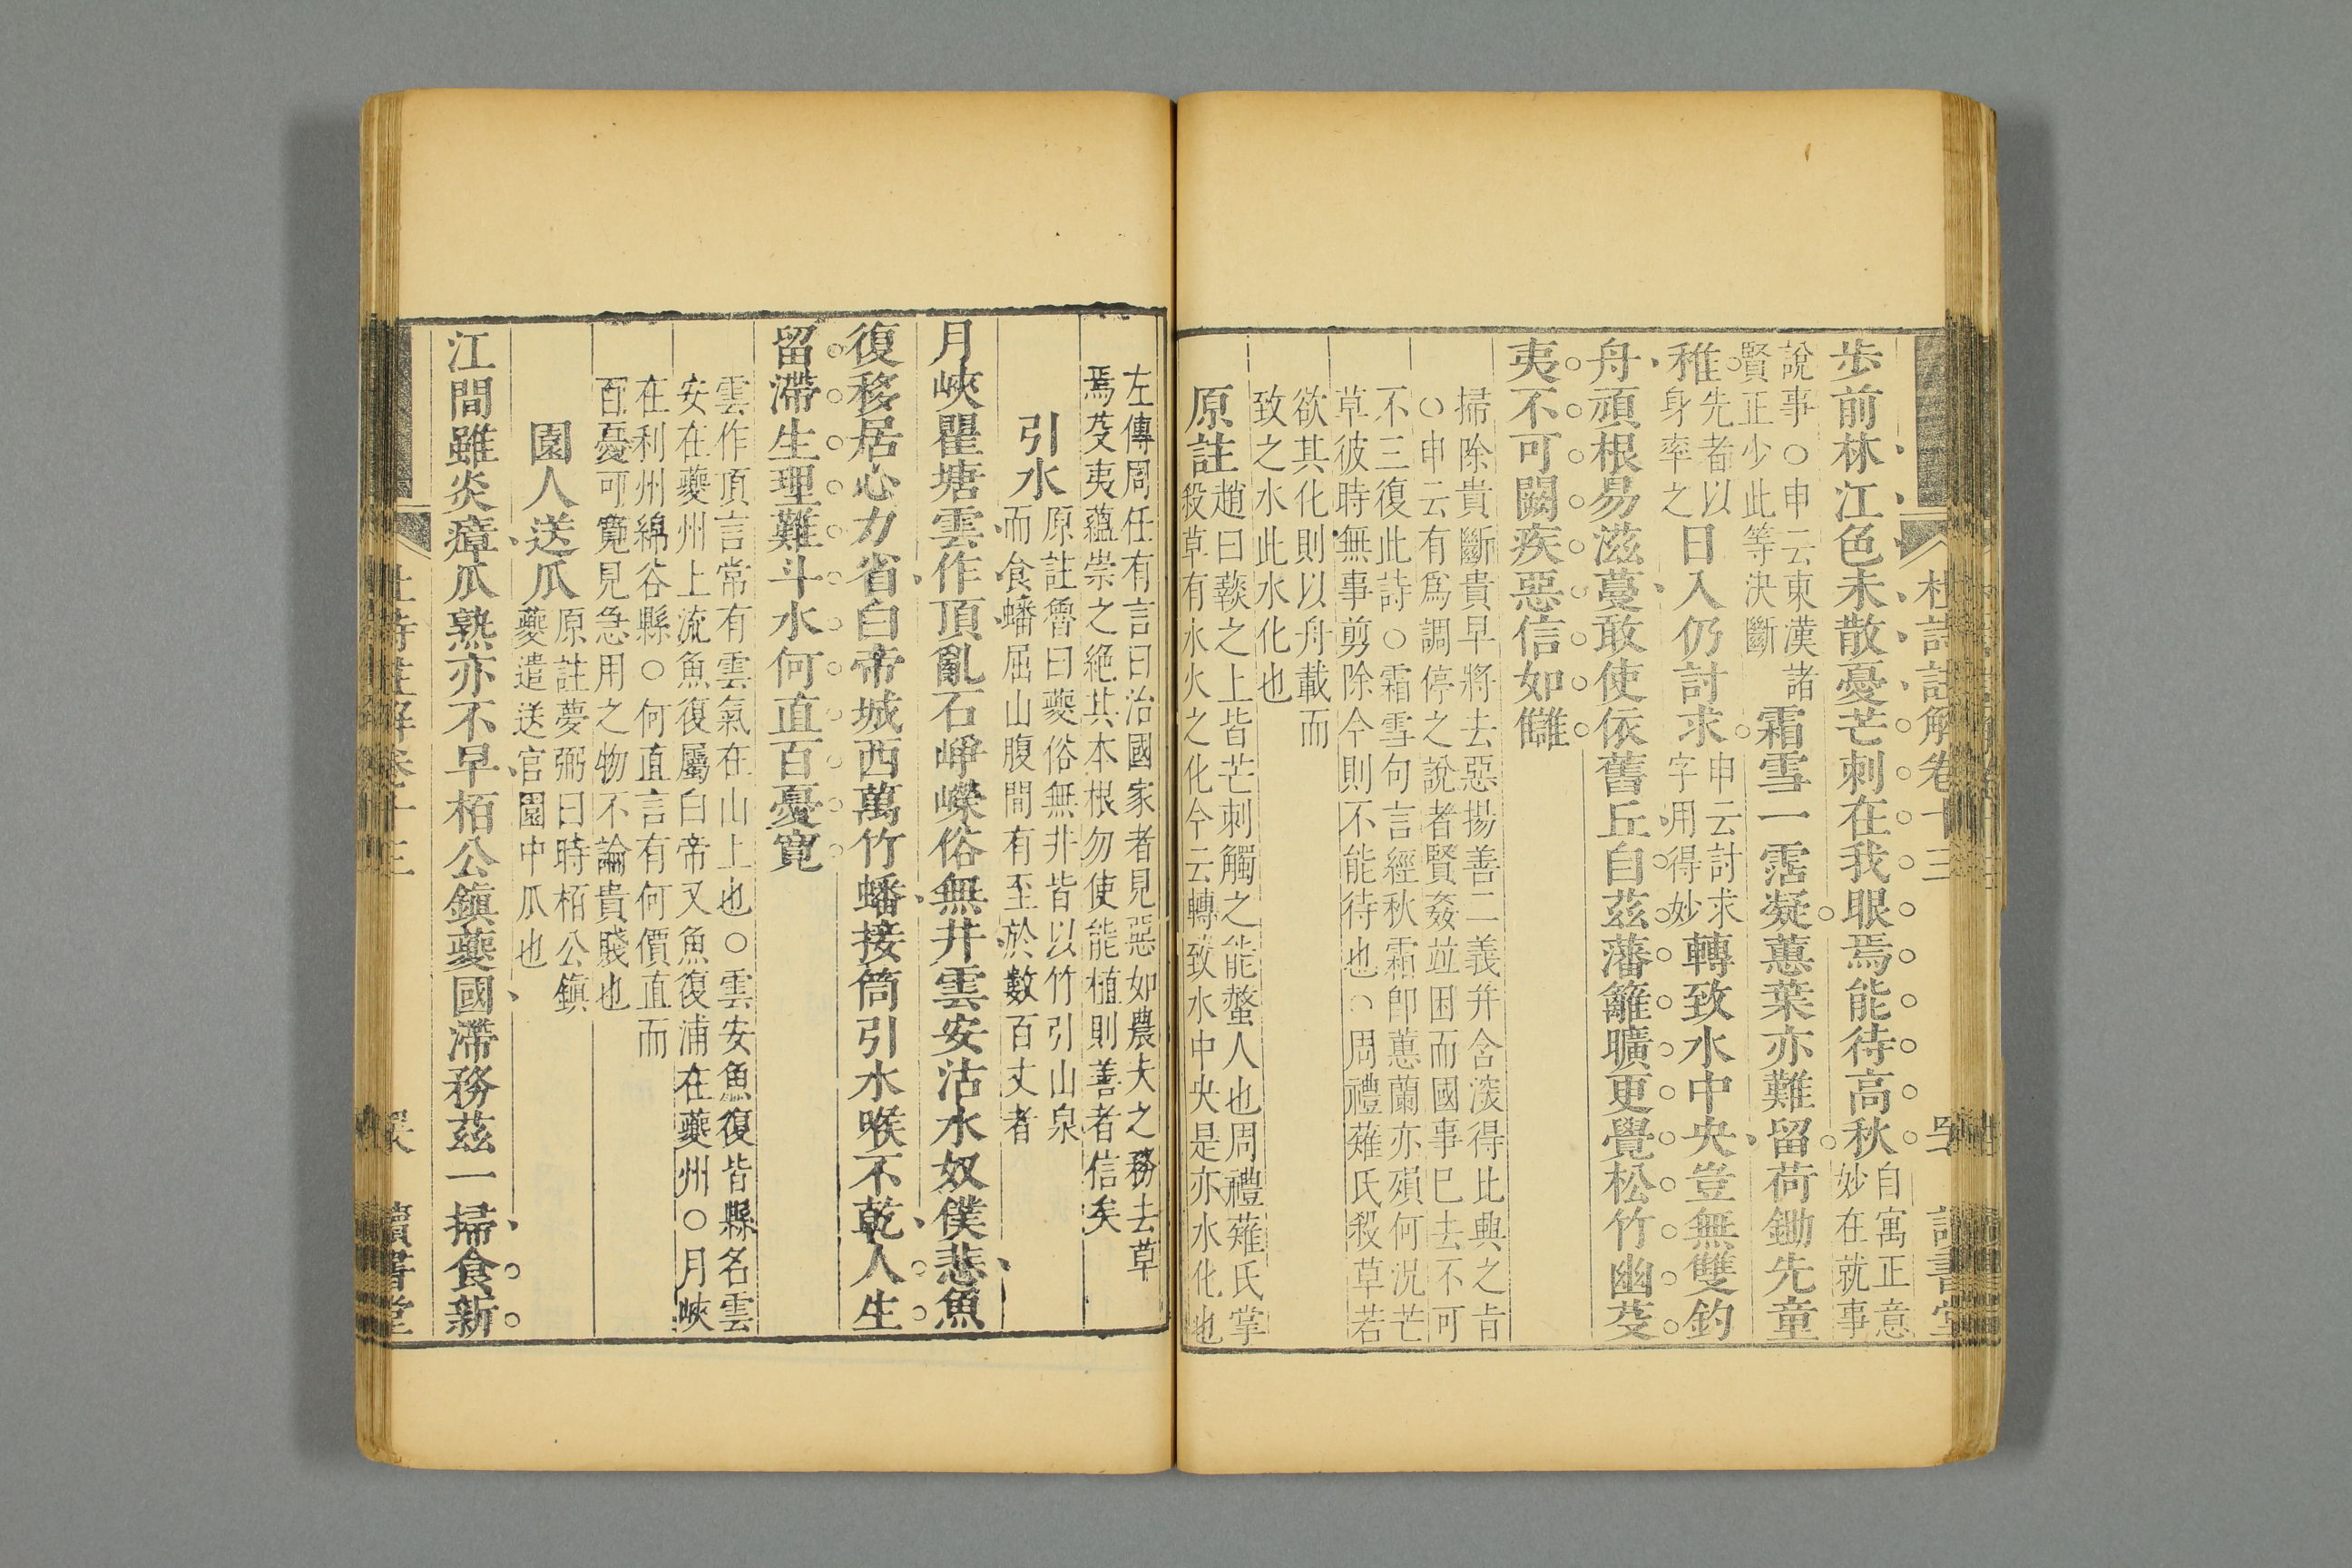 杜詩註解卷十三
讀書堂
步前林江色未散憂芒刺在我眼焉能待高秋自寓正意
妙在就事
說事○申云東漢諸
賢正少此等決斷
霜雪一霑凝蕙葉亦難留荷鋤先童
稚先者以
身率之
日入仍討求申云討求
字用得妙
轉致水中央豈無雙釣
舟頑根易滋蔓敢使依舊丘自茲藩籬曠更覺松竹幽芟
夷不可闕疾惡信如讎
掃除貴斷貴早將去惡揚善二義并合滾得比興之旨
○申云有爲調停之說者賢姦並困而國事已去不可
不三復此詩○霜雪句言經秋霜卽蕙蘭亦殞何況芒
草彼時無事剪除今則不能待也○周禮薙氏殺草若
欲其化則以舟載而
致之水此水化也
原註趙曰蓺之上皆芒刺觸之能螫人也周禮薙氏掌
殺草有水火之化今云轉致水中央是亦水化也
左傳周任有言曰治國家者見惡如農夫之務去草
焉芟夷蘊崇之絶其本根勿使能植則善者信矣
引水原註魯曰夔俗無井皆以竹引山泉
而食蟠屈山腹間有至於數百丈者
月峽瞿塘雲作頂亂石崢嶸俗無井雲安沽水奴僕悲魚
復移居心力省白帝城西萬竹蟠接筒引水喉不乾人生
留滯生理難斗水何直百憂寬
雲作頂言常有雲氣在山上也○雲安魚復皆縣名雲
安在夔州上流魚復屬白帝又魚復浦在夔州○月峽
在利州綿谷縣○何直言有何價直而
百憂可寬見急用之物不論貴賤也
園人送瓜原註夢弼曰時栢公鎮
夔遣送官園中瓜也
江間雖炎瘴瓜熟亦不早栢公鎮夔國滯務茲一掃食新
杜詩註解卷十三
讀書堂